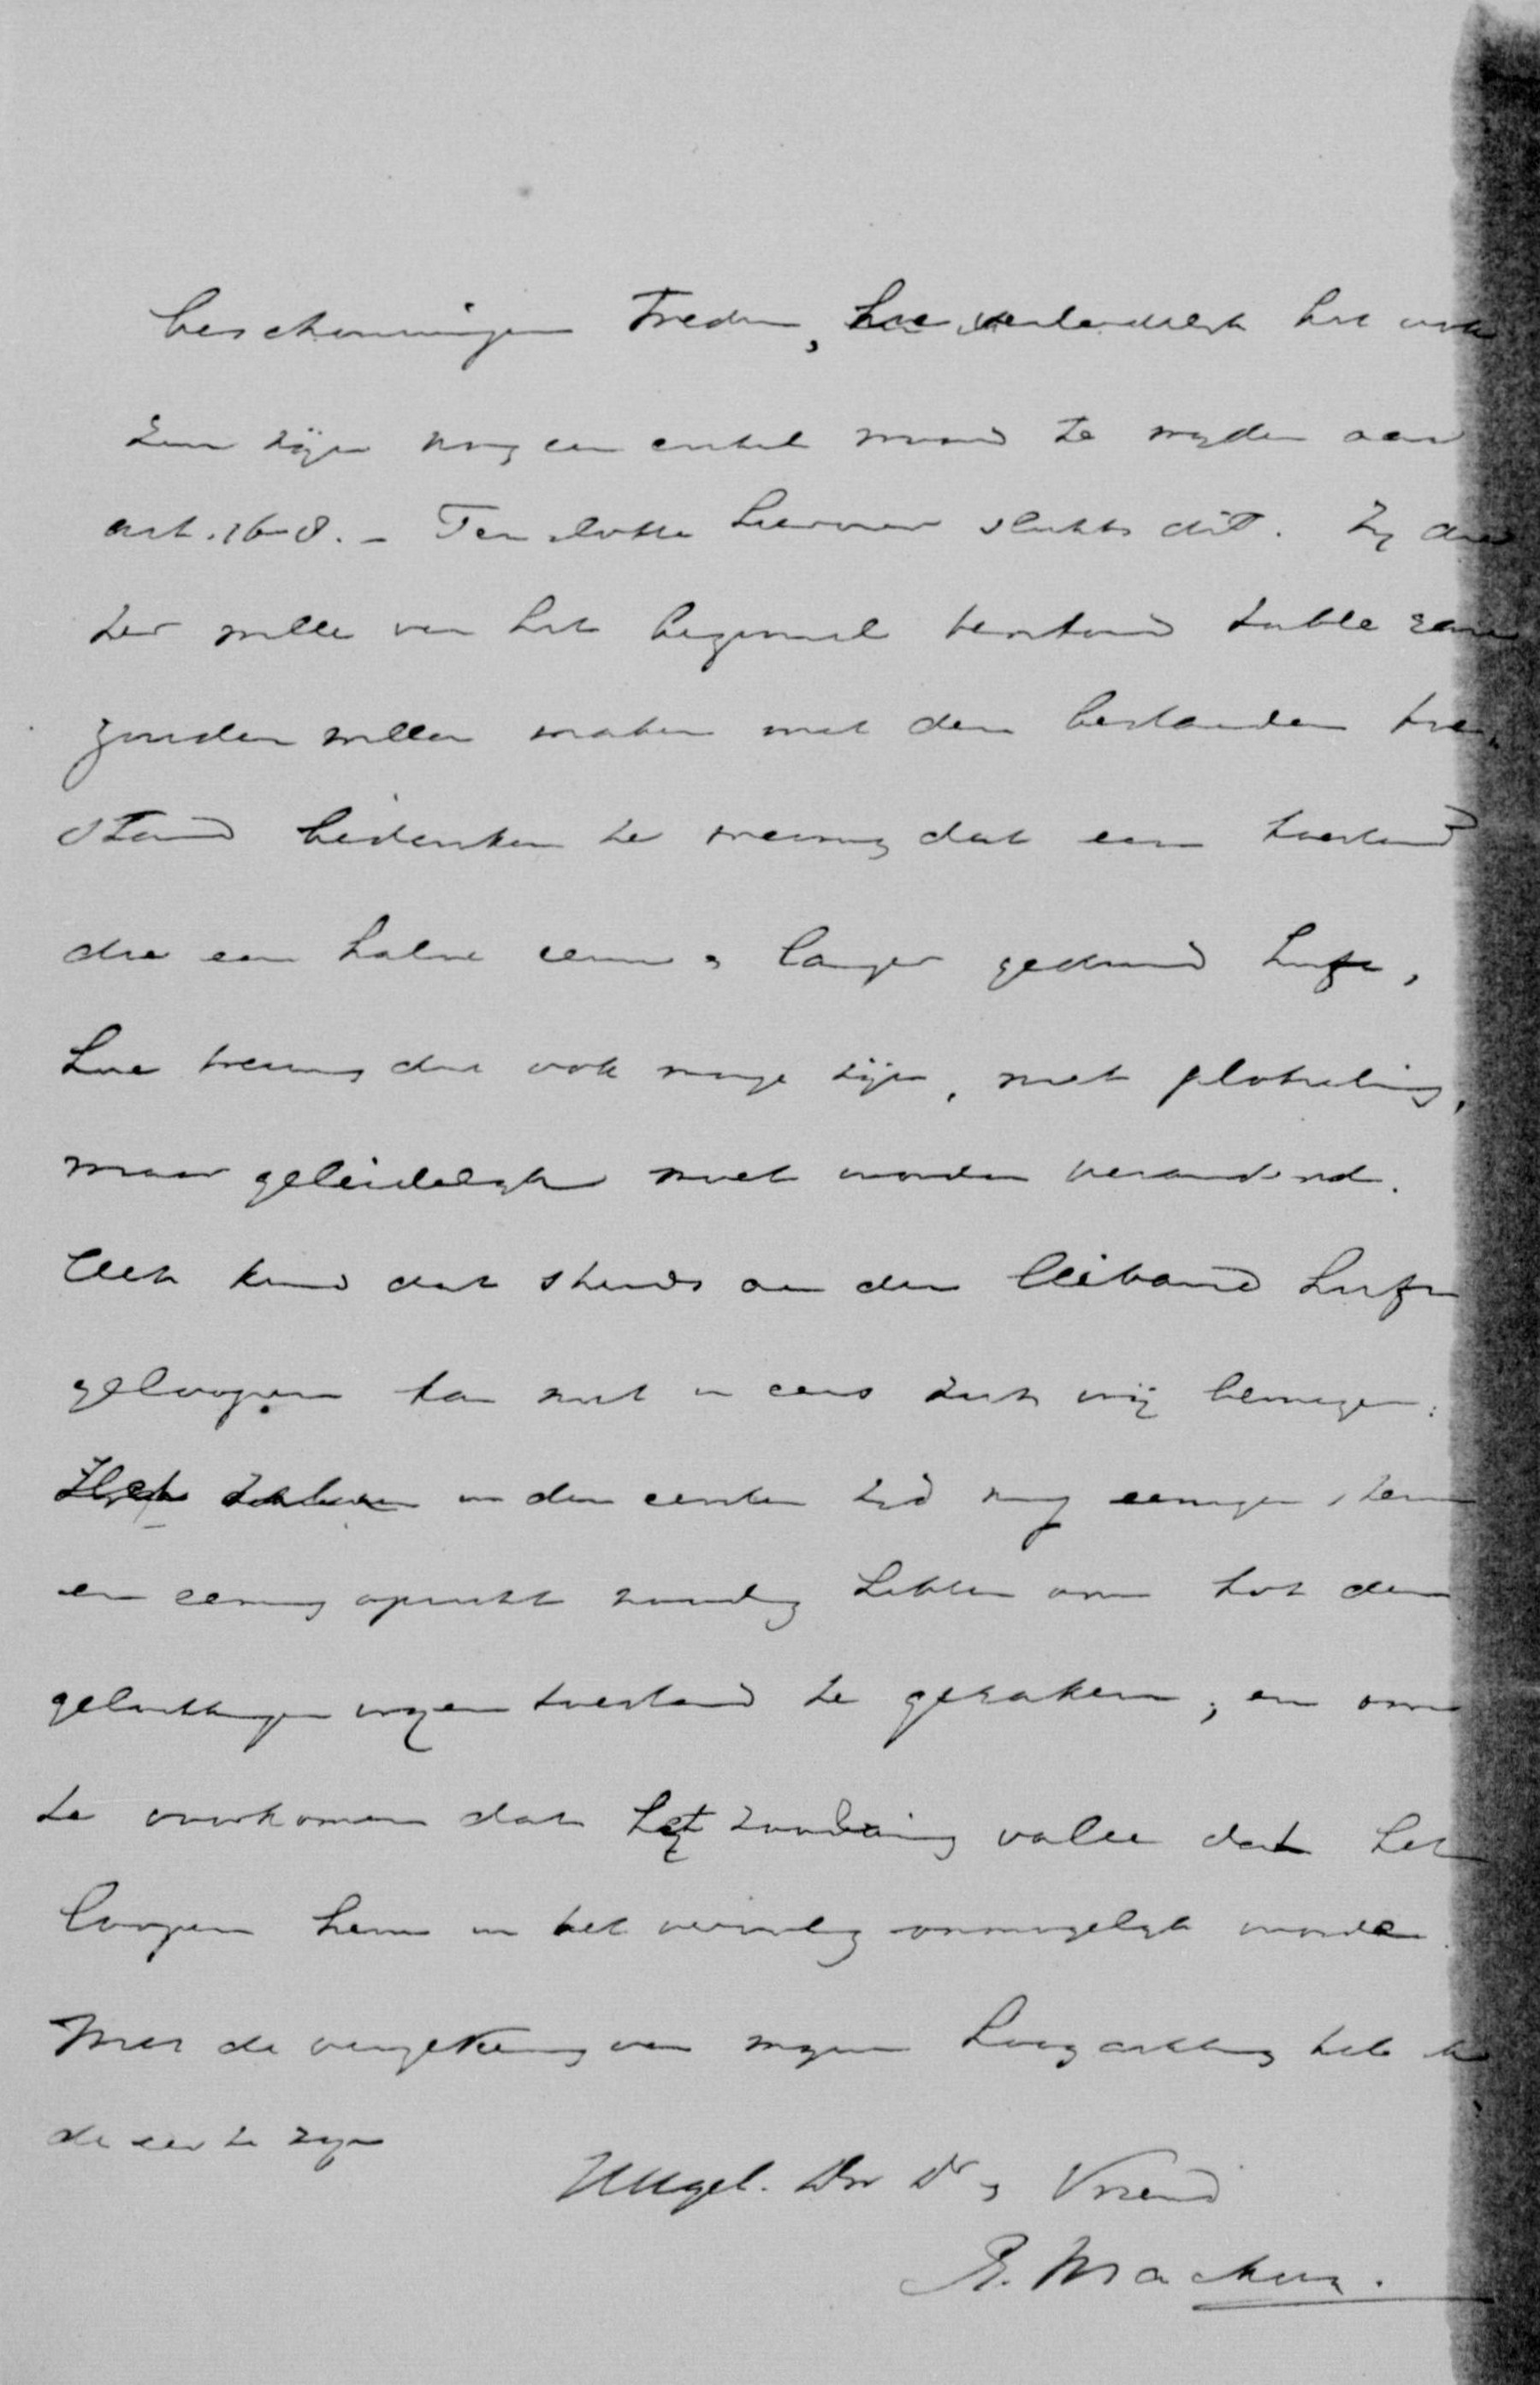 beschouwingen treden, hoe verleidelijk het ook
zou zijn nog een enkel woord te wijden aan
art. 168. – Ten slotte hierover slechts dit. Zij die
ter wille van het beginsel terstond table rase
zouden willen maken met den bestaanden toe„
stand bedenken te weinig dat een toestand
die een halve eeuw en langer geduurd heeft,
hoe treurig die ook moge zijn, niet plotseling,
maar geleidelijk moet worden veranderd.
Elk kind dat steeds aan den leiband heeft
geloopen kan niet in eens zich vrij bewegen:
Het zal in den eersten tijd nog eenigen steun
en eenig opzicht noodig hebben om tot den
gelukkigen vrijen toestand te geraken; en om
te voorkomen dat het zoodanig valle dat het
loopen hem in het vervolg onmogelijk worde.
Met de verzekering van mijne hoogachting heb ik
de eer te zijn
UWEgel. Dw Dr en Vriend
E. Mackay.